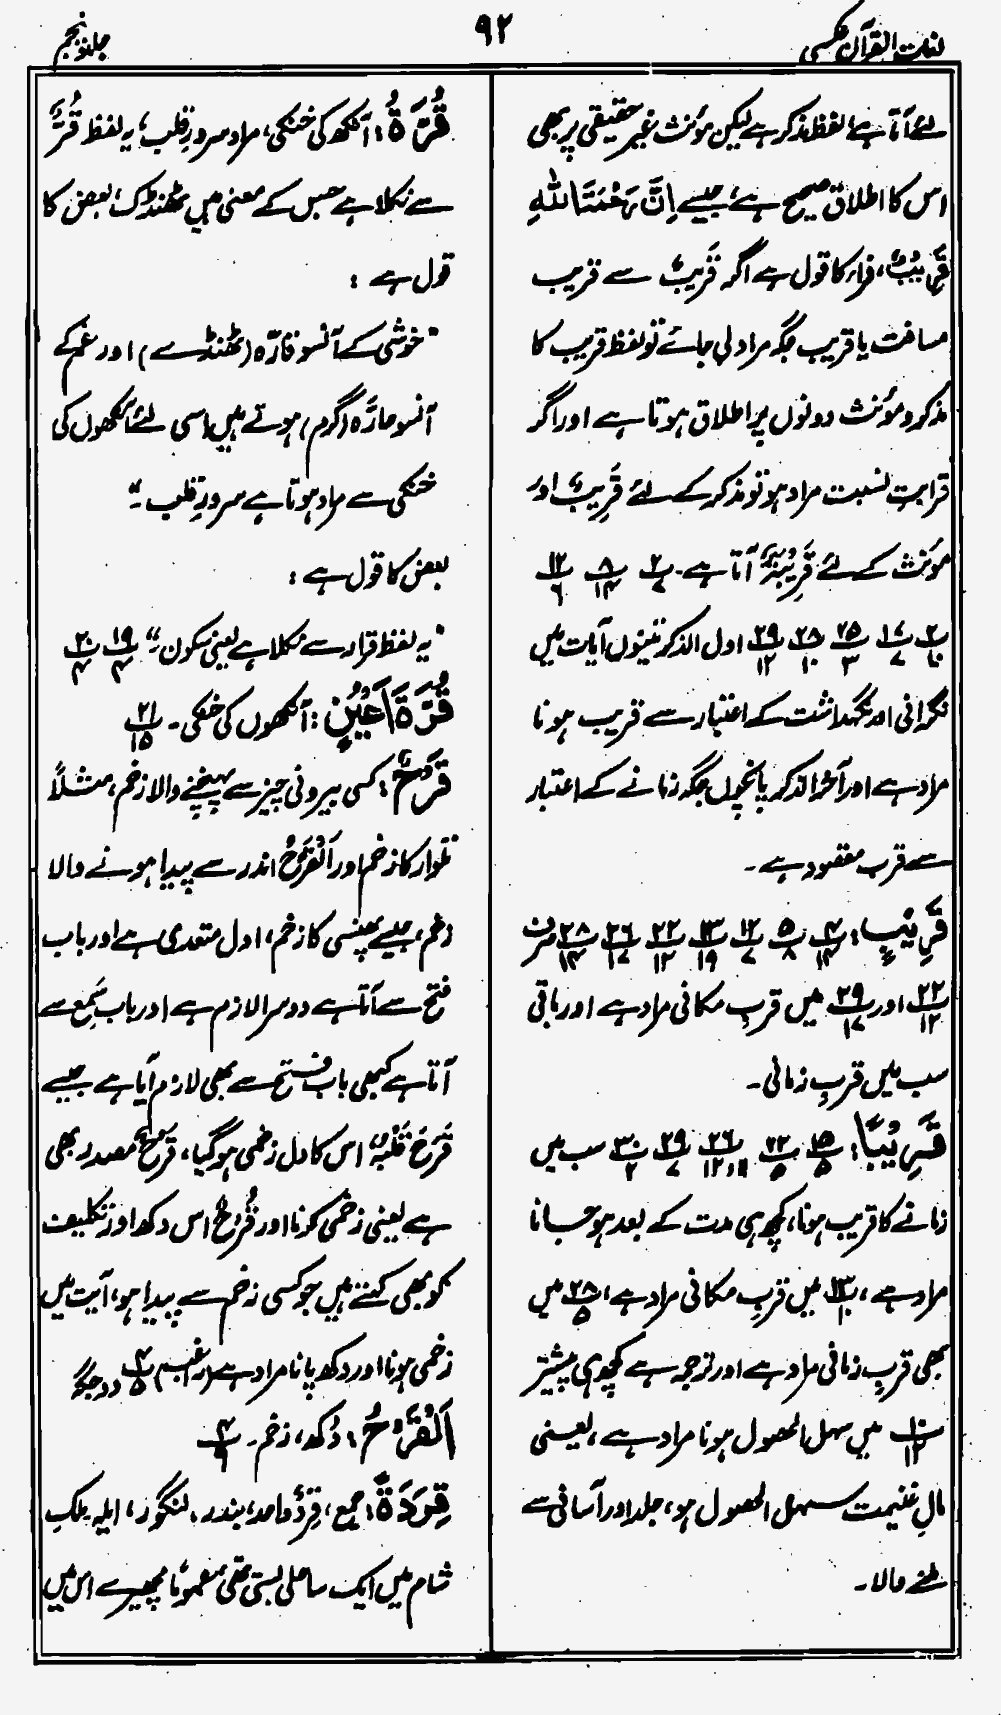 لغات القرآن عکسی
۹۲
جلد پنجم
لئے آتا ہے، لفظ مذکر ہے لیکن مؤنث غیر حقیقی پر بھی
اس کا اطلاق صحیح ہے، جیسے اِنَّ رَحْمَتَ اللّٰہِ
قَرِیْبٌ، فراء کا قول ہے اگر قَرِیْبٌ سے قریب
مسافت یا قریب جگہ مراد لی جائے تو لفظ قریب کا
مذکر و مؤنث دونوں پر اطلاق ہوتا ہے اور اگر
قرابت نسبت مراد ہو تو مذکر کے لئے قَرِیْبٌ اور
مؤنث کے لئے قَرِیْبَۃٌ آتا ہے۔ ۲/۷ ۸/۱۴ ۱۲/۶
۲/۱۰ ۱۷/۷ ۲۵/۳ ۲۸/۱۰ ۲۹/۱۲ اول الذکر تینوں آیات میں
نگرانی اور نگہداشت کے اعتبار سے قریب ہونا
مراد ہے اور آخر الذکر پانچوں جگہ زمانے کے اعتبار
سے قرب مقصود ہے۔
قَرِیْبٍ: ۴/۱۴ ۵/۸ ۱۲/۷ ۱۳/۱۹ ۲۲/۱۲ ۲۶/۱۷ ۲۸/۱۴ صرف
۲۲/۱۲ اور ۲۹/۱۷ میں قربِ مکانی مراد ہے اور باقی
سب میں قربِ زمانی۔
قَرِیْبًا: ۱۵/۵ ۲۲/۵ ۲۶/۱۱،۱۲ ۲۹/۷ ۳۰/۲ سب میں
زمانے کا قریب ہونا، کچھ ہی مدت کے بعد ہو جانا
مراد ہے، ۱۳/۱۰ میں قربِ مکانی مراد ہے، ۲۸/۵ میں
بھی قربِ زمانی مراد ہے اور ترجمہ ہے کچھ ہی پیشتر
۱۰/۱۲ میں سہل الحصول ہونا مراد ہے، یعنی
مالِ غنیمت سہل الحصول ہو، جلد اور آسانی سے
ملنے والا۔
قُرَّۃُ: آنکھ کی خنکی، مراد سرورِ قلب، یہ لفظ قُرٌّ
سے نکلا ہے جس کے معنی ہیں ٹھنڈک، بعض کا
قول ہے :
"خوشی کے آنسو قارّہ (ٹھنڈے) اور غم کے
آنسو حارّہ (گرم) ہوتے ہیں اسی لئے آنکھوں کی
خنکی سے مراد ہوتا ہے سرورِ قلب۔"
بعض کا قول ہے :
"یہ لفظ قرار سے نکلا ہے یعنی سکون۔" ۱۹/۴ ۲۰/۴
قُرَّۃِ اَعْیُنٍ: آنکھوں کی خنکی۔ ۲۱/۱۵
قَرْحٌ: کسی بیرونی چیز سے پہنچنے والا زخم، مثلاً
تلوار کا زخم اور اَلْقَرْحُ اندر سے پیدا ہونے والا
زخم، جیسے پھنسی کا زخم، اول متعدی ہے اور باب
فتح سے آتا ہے دوسرا لازم ہے اور باب سَمِعَ سے
آتا ہے کبھی باب فتح سے بھی لازم آیا ہے جیسے
قَرَحَ قَلْبُہٗ اس کا دل زخمی ہو گیا، قَرْحٌ مصدر بھی
ہے یعنی زخمی کرنا اور قُرْحٌ اس دکھ اور تکلیف
کو بھی کہتے ہیں جو کسی زخم سے پیدا ہو، آیت میں
زخمی ہونا اور دکھ پانا مراد ہے (راغب) ۴/۵ دو جگہ
اَلْقَرْحُ: دُکھ، زخم۔ ۴/۹
قِرَدَۃً: جمع، قِرْدٌ واحد، بندر۔ لنگور، ایلہ ملکِ
شام میں ایک ساحلی بستی تھی عموماً مچھیرے اس میں